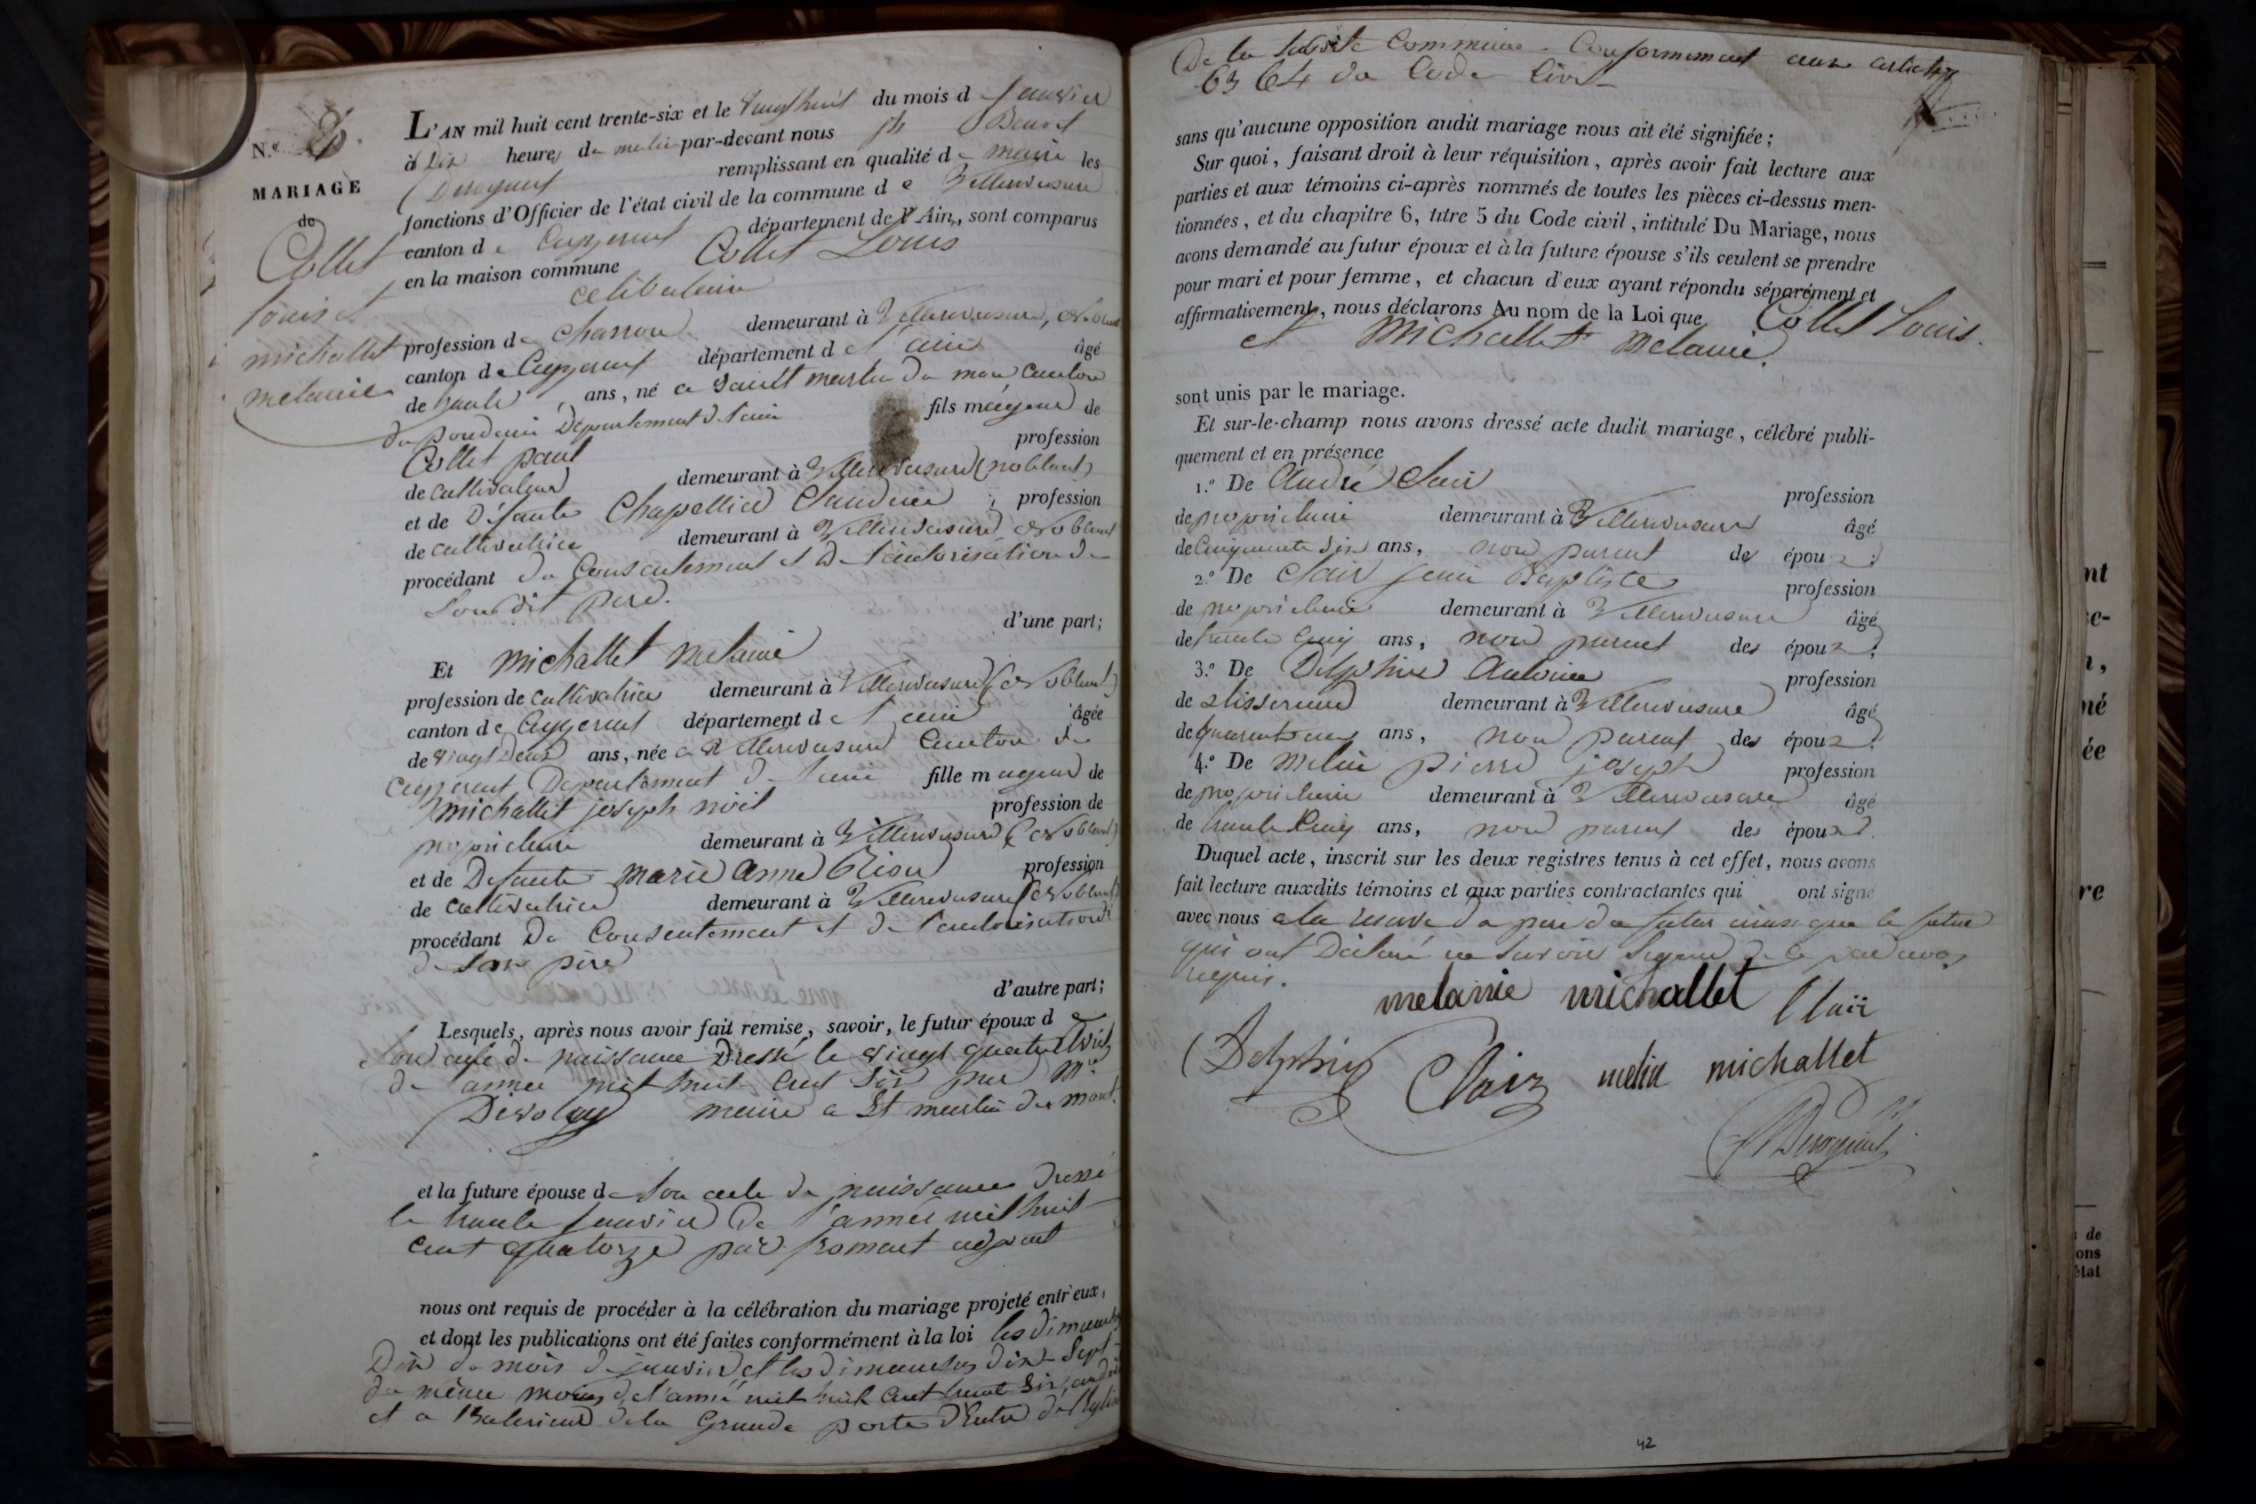 N.º
MARIAGE
de
Collet
Louis et
michallet
melanie
L'AN mil huit cent trente-six et le vingt huit du mois de Janvier
à Dix heures du matin par-devant nous jh Benoit
Derognat remplissant en qualité de maire les
fonctions d'Officier de l'état civil de la commune de Villereversure
canton de Ceyzeriat département de l'Ain, sont comparus
en la maison commune Collet Louis
celibataire
profession de charron demeurant à Villereversure
canton de Ceyzeriat département de l'ain âgé
de trente ans, né a saint martin du mont canton
de pondain Département de l'ain fils majeur de
Collet paul profession
de cultivateur demeurant à Villereversure (noblens)
et de Défunte Chapellier Claudine, profession
de cultivatrice demeurant à Villereversure
procédant du Consentement et De l'autorisation de
Son dit pere.
d'une part;
Et michallet melanie
profession de cultivatrice demeurant à Villereversure
canton de Ceyzeriat département de l'ain âgée
de vingt Deux ans, née a Villereversure Canton de
Ceyzeriat Departement de l'ain fille majeure de
michallet joseph noël profession de
proprietaire demeurant à Villereversure
et de Defunte marie anne profession
de cultivatrice demeurant à Villereversure
procédant Du Consentement et De l'autorisation
de son pere
d'autre part;
Lesquels, après nous avoir fait remise, savoir, le futur époux de
son acte de naissance Dressé le vingt quatre
de l'année mil huit cent Six par Mr
Devolay maire a St martin du mont.
et la future épouse de son acte de naissance dressé
le trente Janvier De l'année mil huit
cent quatorze par fromont adjoint
nous ont requis de procéder à la célébration du mariage projeté entr'eux,
et dont les publications ont été faites conformément à la loi les dimanches
Dix du mois de janvier et les dimanches dix Sept
du même mois de l'année mil huit cent trente six
et a l'Exterieur de la Grande porte d'Entré de l'Eglise
De la susdite Commune Conformement aux articles
63 64 du Code Civil
sans qu'aucune opposition audit mariage nous ait été signifiée;
Sur quoi, faisant droit à leur réquisition, après avoir fait lecture aux
parties et aux témoins ci-après nommés de toutes les pièces ci-dessus men-
tionnées, et du chapitre 6, titre 5 du Code civil, intitulé Du Mariage, nous
avons demandé au futur époux et à la future épouse s'ils veulent se prendre
pour mari et pour femme, et chacun d'eux ayant répondu séparément et
affirmativement, nous déclarons Au nom de la Loi que Collet Louis.
et Michallet Melanie.
sont unis par le mariage.
Et sur-le-champ nous avons dressé acte dudit mariage, célébré publi-
quement et en présence
1.º De André Clair profession
de proprietaire demeurant à Villereversure âgé
de Cinquante Six ans, non parent des époux;
2.º De Clair jean Baptiste profession
de proprietaire demeurant à Villereversure âgé
de trente Cinq ans, non parent des époux;
3.º De Delphin Antoine profession
de tisserand demeurant à Villereversure âgé
de quarante ans, non parent des époux;
4.º De Melin pierre joseph profession
de proprietaire demeurant à Villereversure âgé
de trente Cinq ans, non parent des époux.
Duquel acte, inscrit sur les deux registres tenus à cet effet, nous avons
fait lecture auxdits témoins et aux parties contractantes qui ont signé
avec nous a la reserve du pere du futur ainsi que le futur
qui ont Déclaré ne savoir Signer de ce
requis.
melanie michallet Clair
Delphin Clair melin michallet
Derognat
42